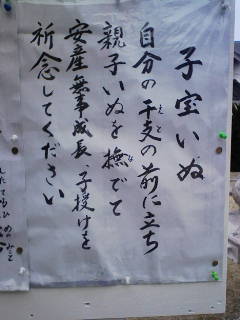 子宝いぬ
自分の干支の前に立ち
えと
親子いぬを撫でて
な
安産、無事成長、子授けを
祈念してください